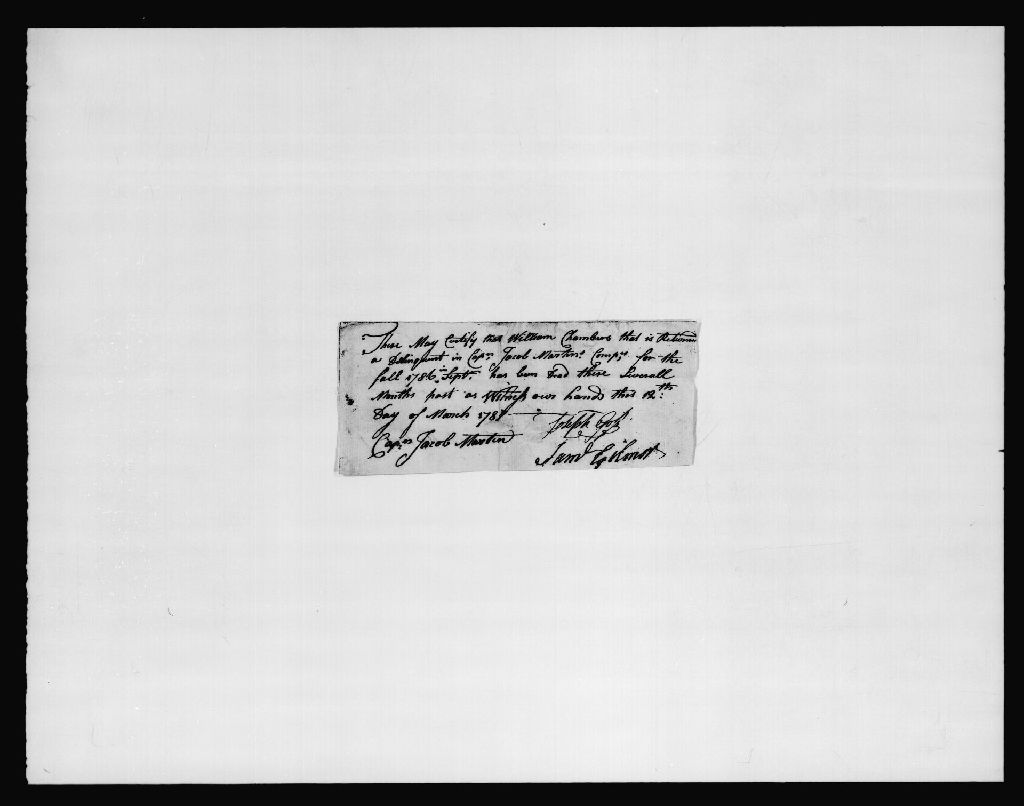 These May Certify that William Chambers that is Returned
a Delinquent in Capn. Jacob Martins. Compy. for the
fall 1786 Septr. has been Dead these Severall
Months past as Witness our hands this 12th.
Day of March 1788
Capn. Jacob Martin Joseph
Saml.